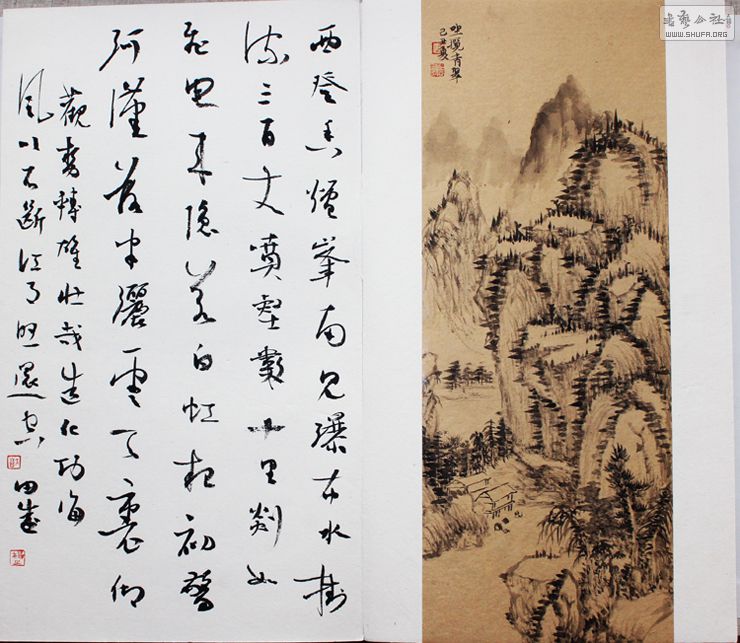 西登香爐峯南見瀑布水掛
流三百丈噴壑數十里欻如
飛電来隱若白虹起初驚
河漢落半灑雲天裏仰
觀勢轉雄壯哉造化功海
風吹不斷江月照還空
坐攬青翠
己丑夏
书艺公社
WWW.SHUFA.ORG